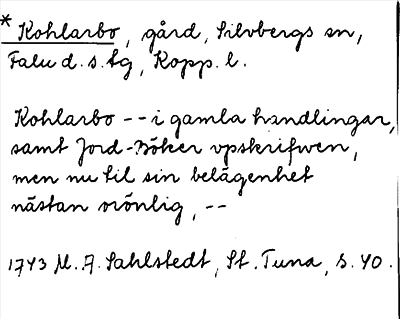 * Kohlarbo, gård, Silvbergs sn,
Falu d. s. tg, Kopp. l.
Kohlarbo -- i gamla handlingar,
samt Jord-Böker upskrifwen,
men nu til sin belägenhet
nästan orönlig, --
1743 M. A. Sahlstedt, St. Tuna, s. 40.